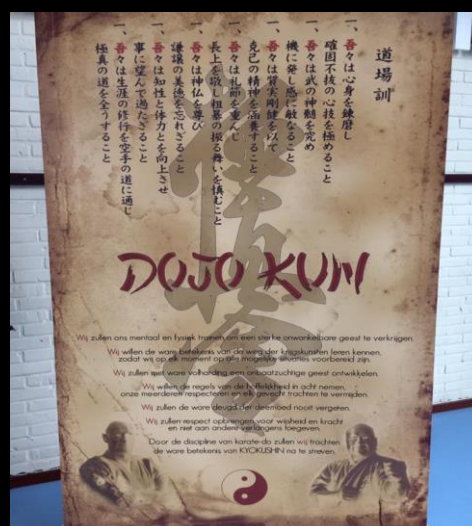 道場訓
一、吾々は心身を錬磨し
確固不抜の心技を極めること
一、吾々は武の神髄を究め
機に発し感に敏なること
一、吾々は質実剛健を以て
克己の精神を涵養すること
一、吾々は礼節を重んじ
長上を敬し粗暴の振る舞いを慎むこと
一、吾々は神仏を尊び
謙譲の美徳を忘れざること
一、吾々は知性と体力とを向上させ
事に望んで過たざること
一、吾々は生涯の修行を空手の道に通じ
極真の道を全うすること
DOJO KUN
Wij zullen ons mentaal en fysiek trainen om een sterke onwankelbare geest te verkrijgen.
Wij willen de ware betekenis van de weg der krijgskunsten leren kennen,
zodat wij op elk moment op alle mogelijke situaties voorbereid zijn.
Wij zullen met ware volharding een onbaatzuchtige geest ontwikkelen.
Wij willen de regels van de hoffelijkheid in acht nemen,
onze meerderen respecteren en elk gevecht trachten te vermijden.
Wij zullen de ware deugd der deemoed nooit vergeten.
Wij zullen respect opbrengen voor wijsheid en kracht
en niet aan andere verlangens toegeven.
Door de discipline van karate-do zullen wij trachten
de ware betekenis van KYOKUSHIN na te streven.